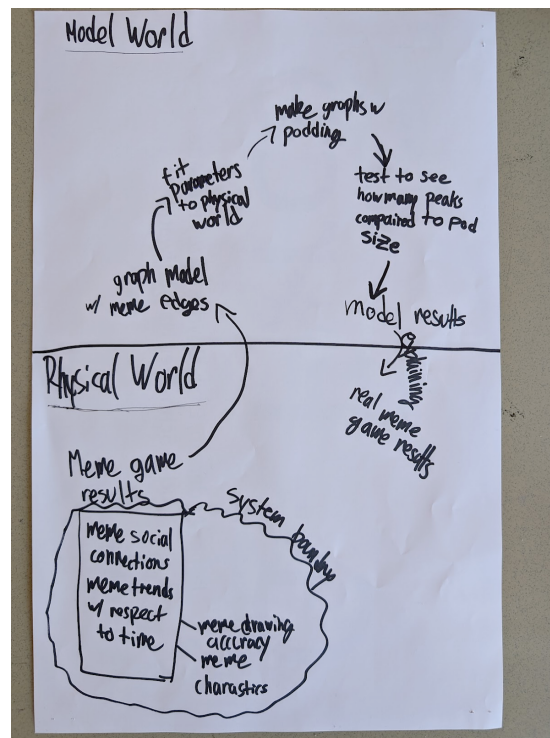 Model World
make graphs w
podding
fit
parameters
to physical
world
test to see
how many peaks
compaired to pod
size
graph model
w/ meme edges
model results
Physical World
real meme
game results
Meme game
results
System boundry
meme social
connections
meme trends
w/ respect
to time
meme drawing
accuracy
meme
charastics